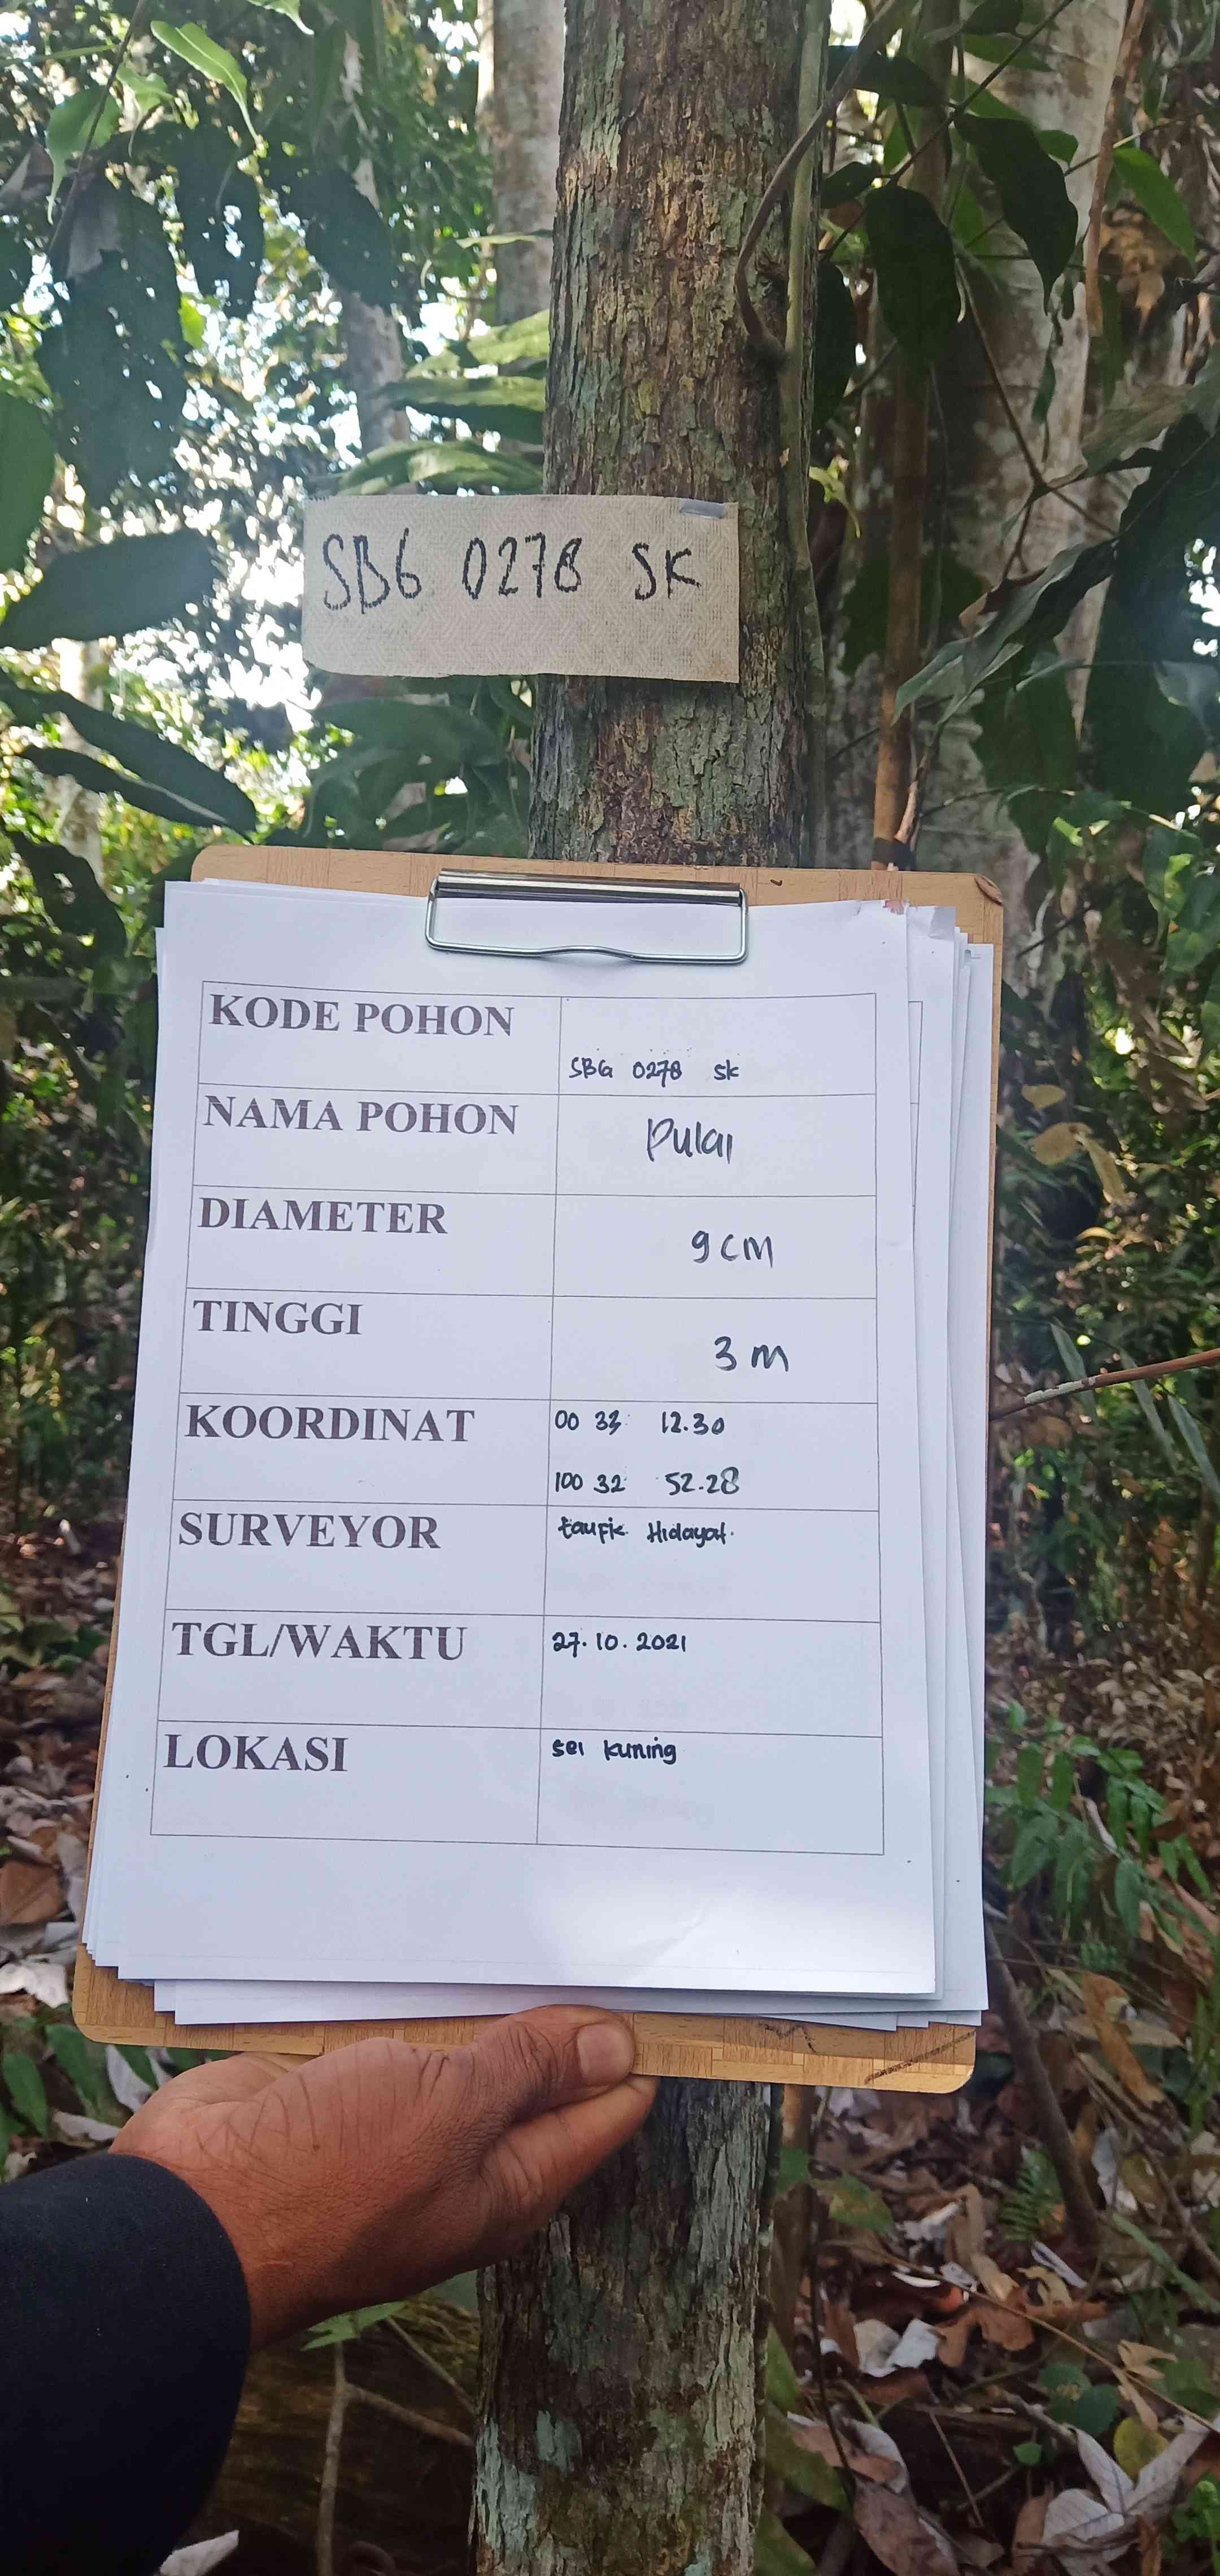 SBG 0278 SK
KODE POHON
SBG 0278 SK
NAMA POHON
Pulai
DIAMETER
9 cm
TINGGI
3 m
KOORDINAT
00 33 12.30
100 32 52.28
SURVEYOR
taufik Hidayat.
TGL/WAKTU
27.10.2021
LOKASI
sei kuning